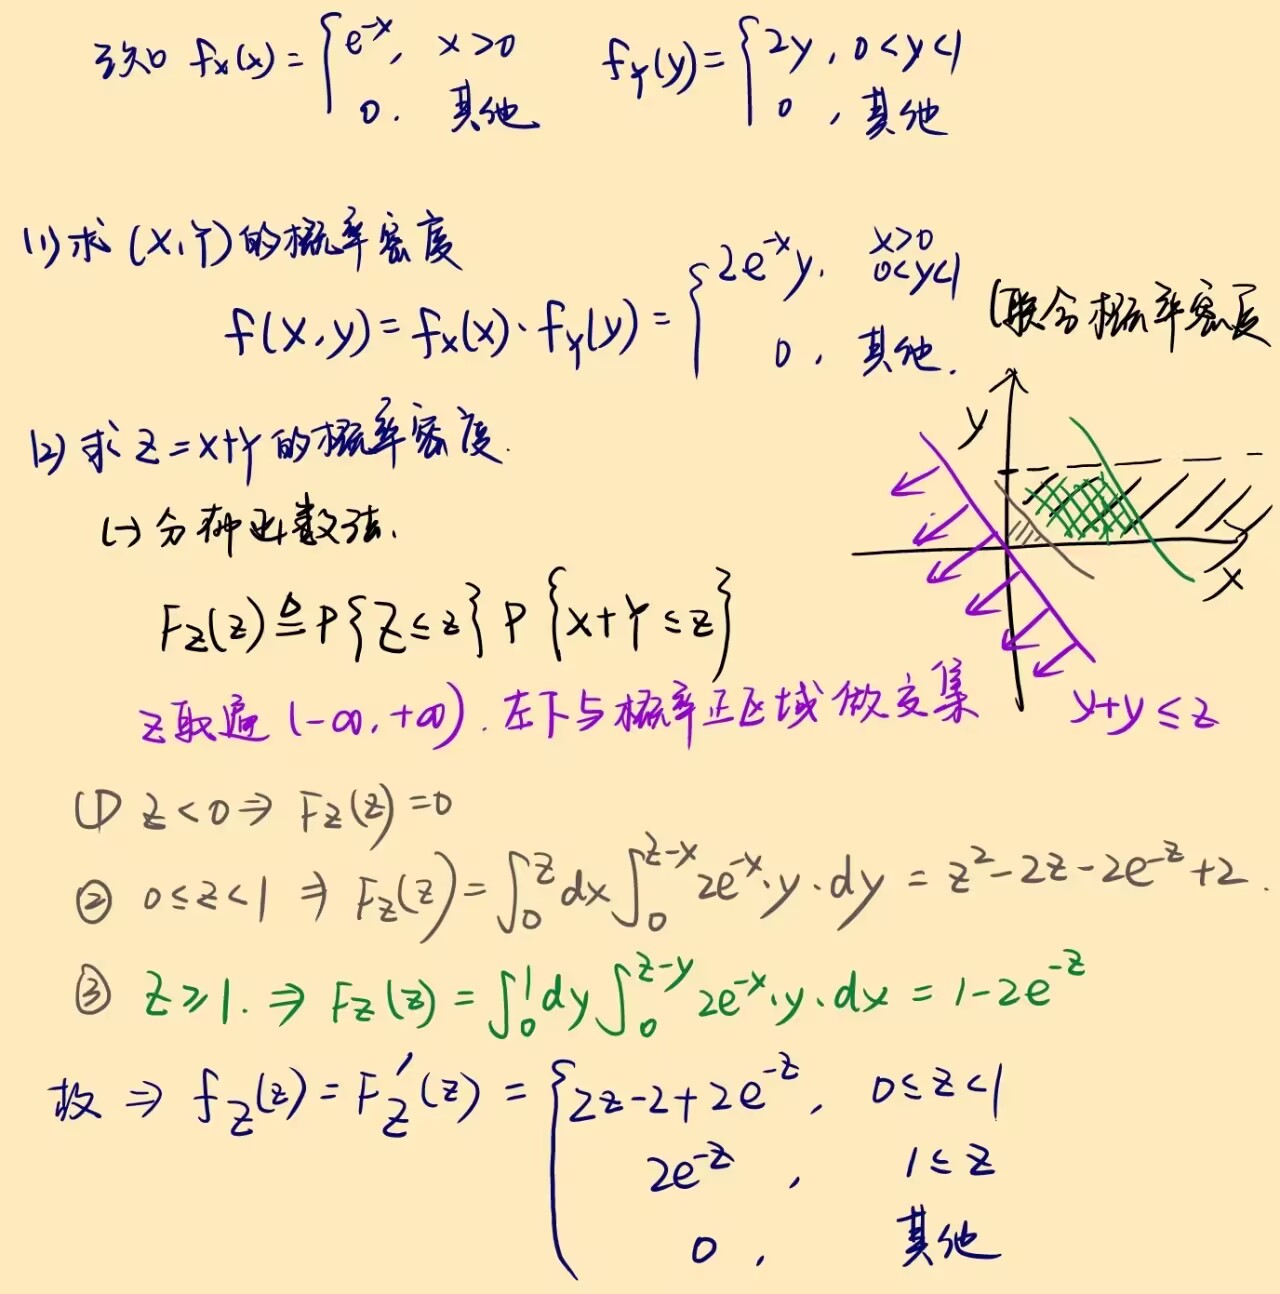 已知 fₓ(x) = { e⁻ˣ, x>0 ; 0. 其他    f_Y(y) = { 2y, 0<y<1 ; 0, 其他
(1) 求 (X,Y) 的概率密度
f(x,y) = fₓ(x)·f_Y(y) = { 2e⁻ˣy, x>0 0<y<1 ; 0, 其他.
(联合概率密度
y
x
(2) 求 Z=X+Y 的概率密度.
(一) 分布函数法.
F_Z(z) ≜ P{Z≤z} P{X+Y≤z}
z取遍 (-∞,+∞). 左下与概率正区域做交集
y+y≤z
① z<0 ⇒ F_Z(z)=0
② 0≤z<1 ⇒ F_Z(z) = ∫₀ᶻ dx ∫₀ᶻ⁻ˣ 2e⁻ˣ·y·dy = z²-2z-2e⁻ᶻ+2.
③ z≥1. ⇒ F_Z(z) = ∫₀¹ dy ∫₀ᶻ⁻ʸ 2e⁻ˣ·y·dx = 1-2e⁻ᶻ
故 ⇒ f_Z(z) = F'_Z(z) = { 2z-2+2e⁻ᶻ, 0≤z<1
2e⁻ᶻ, 1≤z
0, 其他